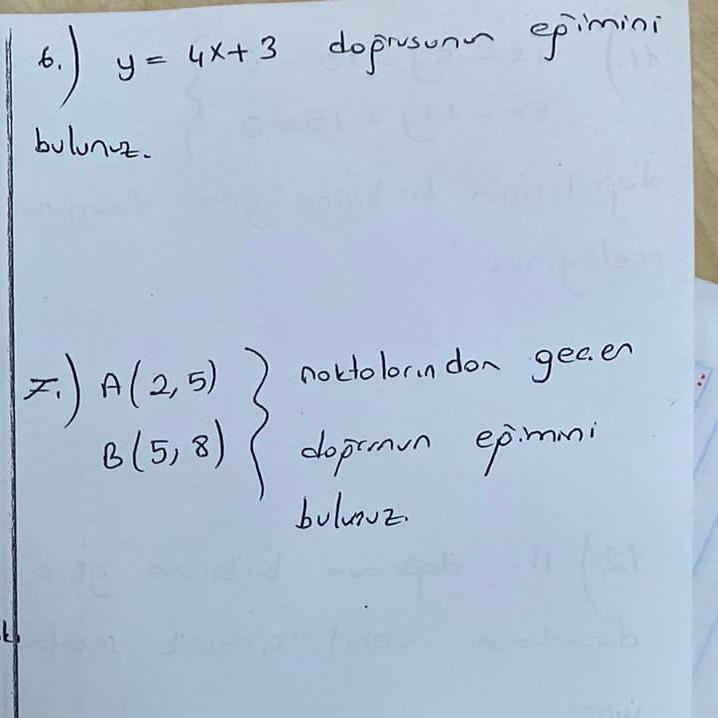 6.) y = 4x+3 doğrusunun eğimini
bulunuz.
7.) A(2,5) } noktalarından geçen
B(5,8) doğrunun eğimini
bulunuz.